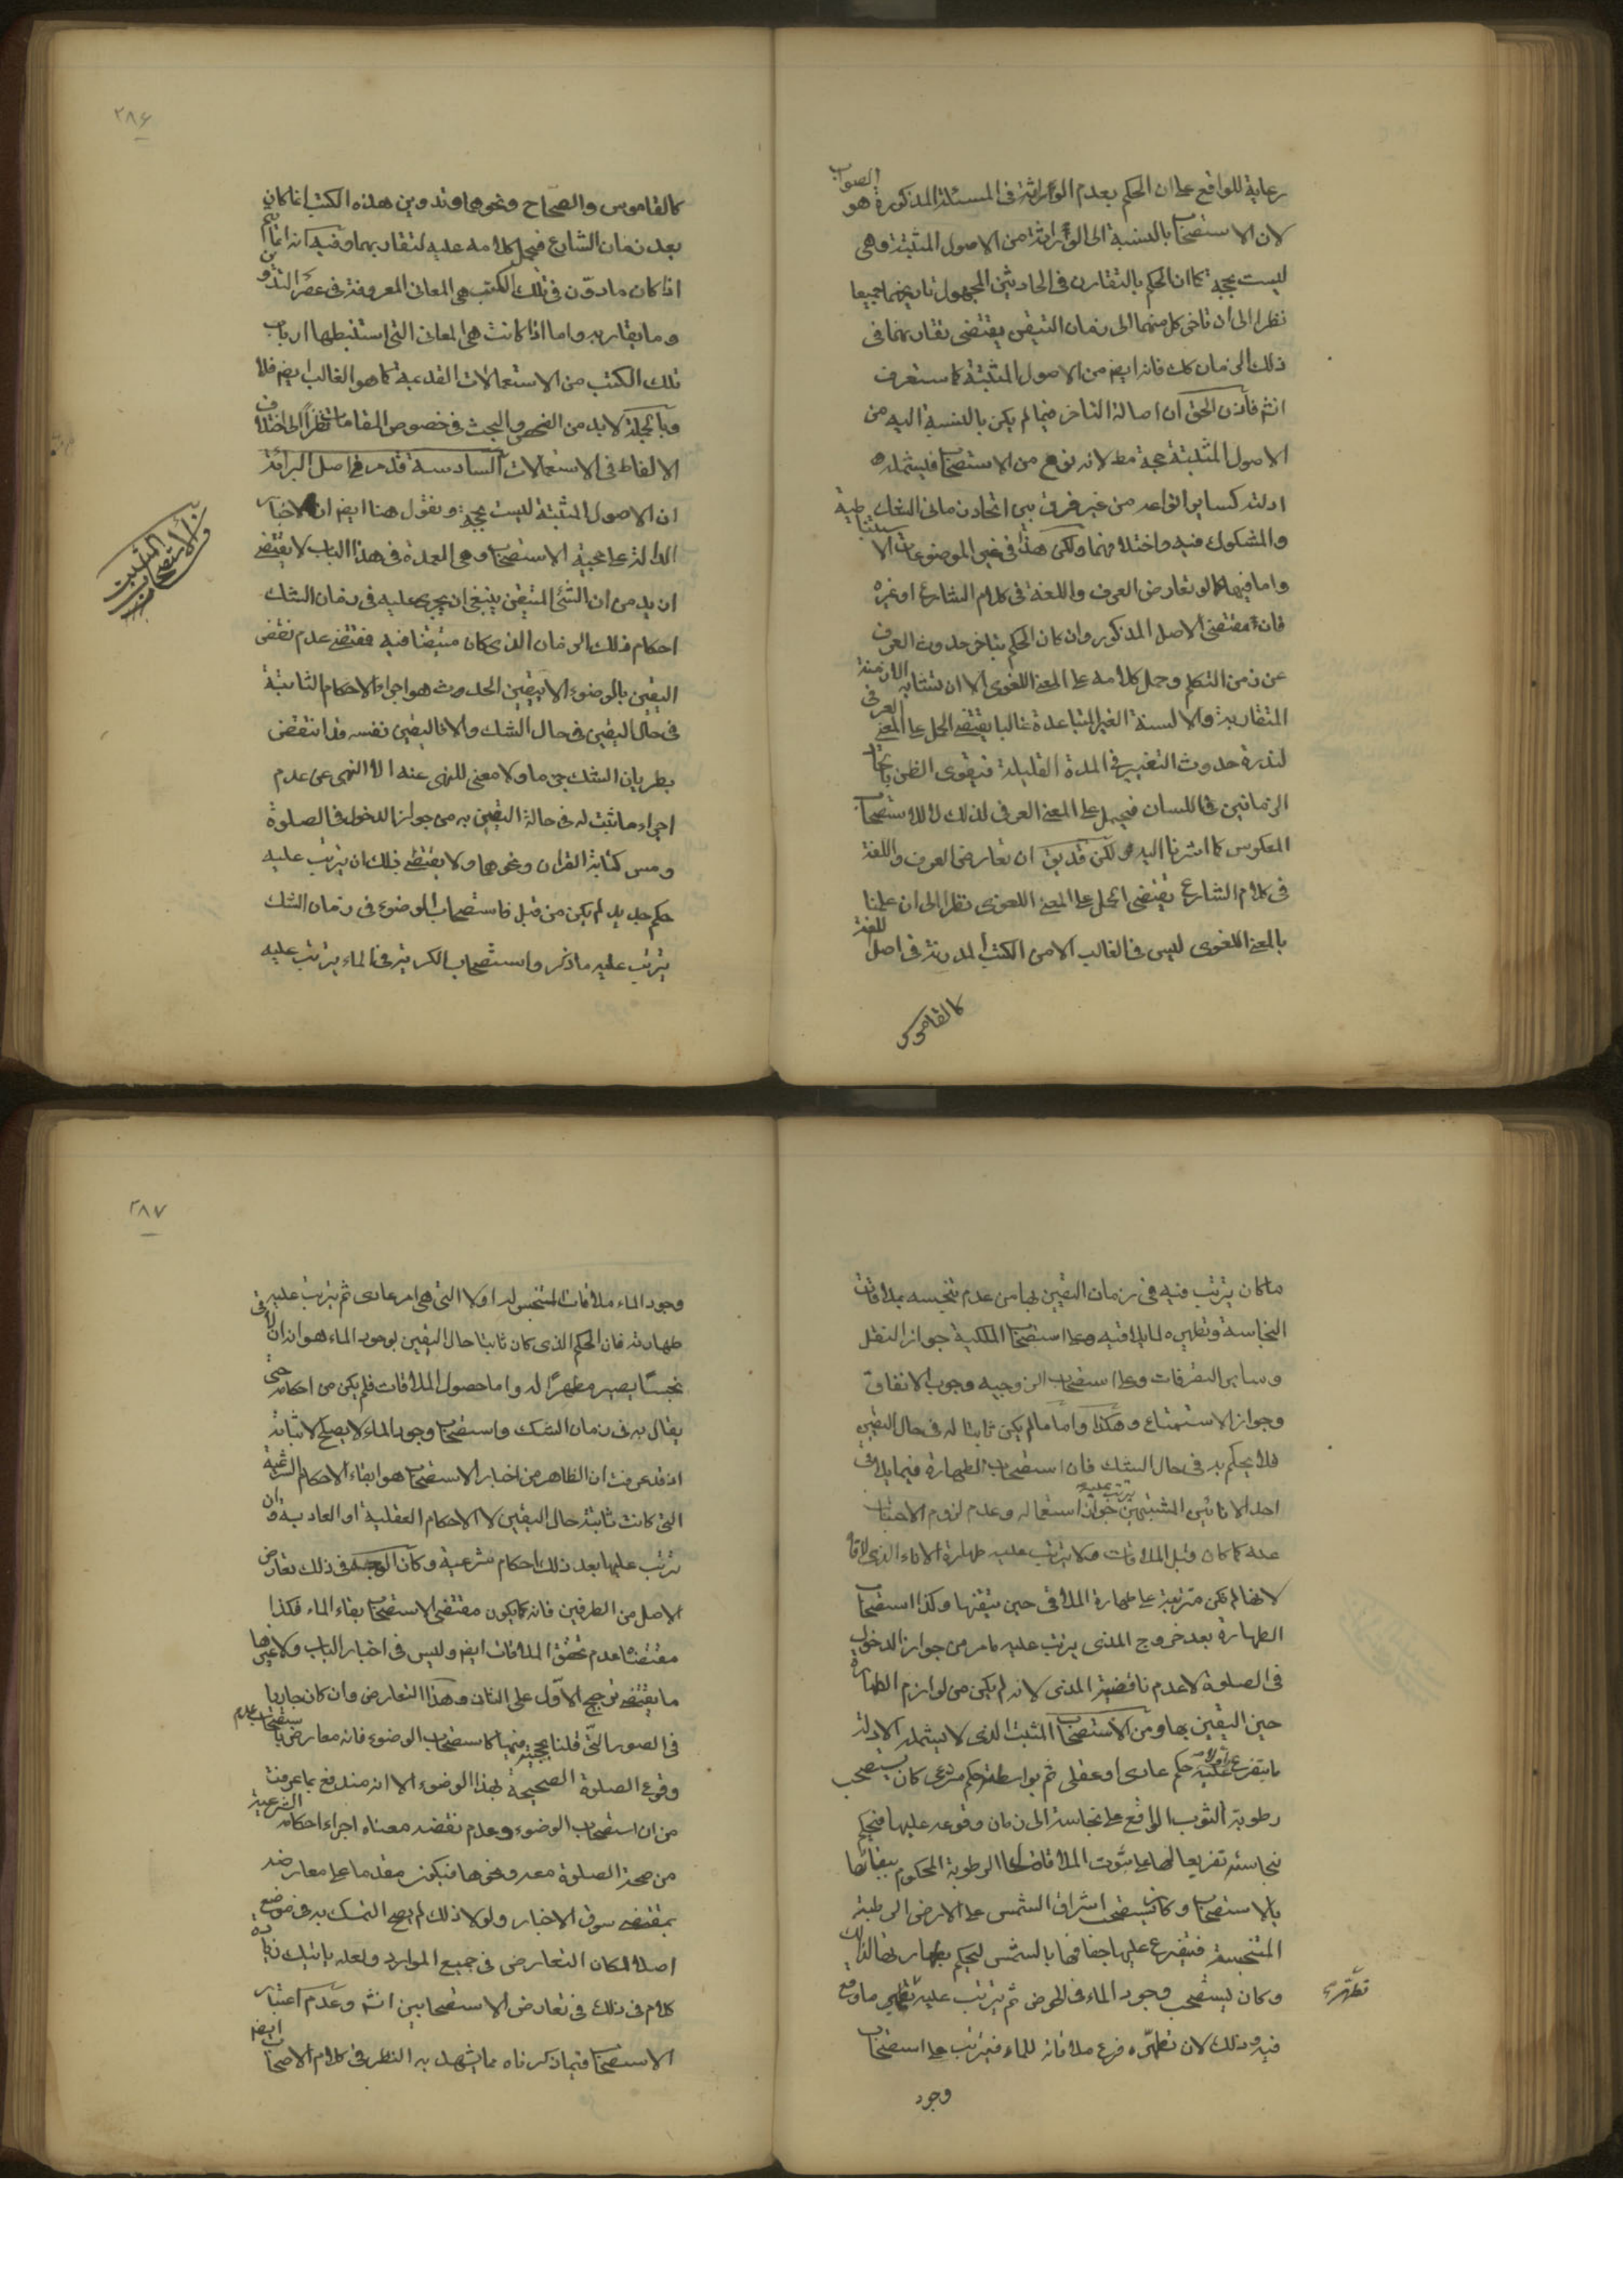 رعاية للواقع على ان الحكم بعدم الوراثة فى المسئلة المذكورة هو الصواب
لان الاستصحاب بالنسبة الى الوراثة من الاصول المثبتة وهى
ليست بحجة كما ان الحكم بالتقارن فى الحادثين المجهول تاريخهما جميعا
نظرا الى ان تاخر كل منهما الى زمان التيقن يقتضى تقارنهما فى
ذلك الزمان كك فانه ايضم من الاصول المثبتة كما ستعرف
انشم فاذن الحق ان اصالة التاخر فيما لم يكن بالنسبة اليه من
الاصول المثبتة حجة مط لانه نوع من الاستصحاب فليشمله
ادلته كساير انواعه من غير فرق بين اتحاد زمانى الشك
والمشكوك فيه واختلافهما ولكن هذا فى غير الموضوعات الاستنباطية
واما فيها كما لو تعارض العرف واللغة فى كلام الشارع او غيره
فان مقتضى الاصل المذكور وان كان الحكم بتاخر حدوث العرف
عن زمن التكلم وحمل كلامه على المعنى اللغوى الا ان تشابه الازمنة
المتقاربة والالسنة الغير المتباعدة غالبا يقتضى الحمل على المعنى العرفى
لندرة حدوث التغيير فى المدة القليلة فيقوى الظن باتحاد
الزمانين فى اللسان فيحمل على المعنى العرفى لذلك لا للاستصحاب
المعكوس كما اشرنا اليه ولكن قد يق ان تعارض العرف واللغة
فى كلام الشارع يقتضى الحمل على المعنى اللغوى نظرا الى ان علمنا
بالمعنى اللغوى ليس فى الغالب الا من الكتب المدونة فى اصل اللغة
كالقاموس
٢٨۶
كالقاموس والصحاح ونحوهما وتدوين هذه الكتب انما كان
بعد زمان الشارع فيحمل كلامه عليه لتقاربهما وفيه انه انما يتم
اذا كان ما دوّن فى تلك الكتب هى المعانى المعروفة فى عصر التدوين
وما يقاربه واما اذا كانت هى المعانى التى استنبطها ارباب
تلك الكتب من الاستعمالات القديمة كما هو الغالب ايضم فلا
وبالجملة لابد من الفحص والبحث فى خصوص المقامات نظراً الى اختلاف
الالفاظ فى الاستعمالات السادسة قد مر فى اصل البرائة
ان الاصول المثبتة ليست بحجة ونقول هنا ايضم ان الاخبار
الدالة على حجية الاستصحاب وهى العمدة فى هذا الباب لا يقتضى
ازيد من ان الشئ المتيقن ينبغى ان يجرى عليه فى زمان الشك
احكام ذلك الزمان الذى كان متيقنا فيه فمقتضى عدم نقض
اليقين بالوضوء الا بيقين الحدوث هو اجراء الاحكام الثابتة
فى حال اليقين فى حال الشك والا فاليقين نفسه قد انتقض
بطريان الشك جزما ولا معنى للنهى عنه الا النهى عن عدم
اجراء ما ثبت له فى حالة اليقين به من جواز الدخول فى الصلوة
ومس كتابة القران ونحوهما ولا يقتضى ذلك ان يترتب عليه
حكم جديد لم يكن من قبل فاستصحاب الوضوء فى زمان الشك
يترتب عليه ما ذكر واستصحاب الكرية فى الماء يترتب عليه
ما كان يترتب فيه فى زمان اليقين بها من عدم تنجسه بملاقات
النجاسة وتطهيره لما يلاقيه وعلى استصحاب الملكية جواز النقل
وساير التصرفات وعلى استصحاب الزوجيه وجوب الانفاق
وجواز الاستمتاع وهكذا واما ما لم يكن ثابتا له فى حال اليقين
فلا يحكم به فى حال الشك فان استصحاب الطهارة فيما يلاقى
احد الانائين المشتبهين يترتب عليه جواز استعماله وعدم لزوم الاجتناب
عنه كما كان قبل الملاقات ولا يترتب عليه طهارة الاناء الذى لاقاه
لانها لم تكن مترتبة على طهارة الملاقى حين تيقنها وكذا استصحاب
الطهارة بعد خروج المذى يترتب عليه ما مر من جواز الدخول
فى الصلوة لا عدم ناقضية المذى لانه لم يكن من لوازم الطهارة
حين اليقين بها ومن الاستصحاب المثبت الذى لا يشمله الادلة
ما يتفرع عليه اولا حكم عادى او عقلى ثم بواسطته حكم شرعى كان يستصحب
رطوبة الثوب الواقع على نجاسة الى زمان وقوعه عليها فيحكم
بنجاسته تفريعا لها على ثبوت الملاقات لها الرطوبة المحكوم ببقائها
بالاستصحاب وكان يستصحب اشراق الشمس على الارض الرطبة
المتنجسة فيتفرع عليها جفافها بالشمس ليحكم بطهارتها لذلك
وكان يستصحب وجود الماء فى الحوض ثم يترتب عليه تطهير ما وقع
فيه وذلك لان تطهّره فرع ملاقاته للماء فيترتب على استصحاب
وجود
٢٨٧
وجود الماء ملاقات المتنجس له اولا التى هى امر عادى ثم يترتب عليه
طهارته فان الحكم الذى كان ثابتا حال اليقين بوجود الماء هو انه ان لاقى
نجسًا يصير مطهرًا له واما حصول الملاقات فلم يكن من احكامه حتى
يقال به فى زمان الشك واستصحاب وجود الماء لا يصلح لاثباته
اذ قد عرفت ان الظاهر من اخبار الاستصحاب هو ابقاء الاحكام الشرعية
التى كانت ثابتة حال اليقين لا الاحكام العقلية او العادية وان
ترتب عليها بعد ذلك احكام شرعية وكان الوجه فى ذلك تعارض
الاصل من الطرفين فانه كما يكون مقتضى الاستصحاب بقاء الماء فكذا
مقتضاه عدم تحقق الملاقات ايضم وليس فى اخبار الباب ولا غيرها
ما يقتضى ترجيح الاوّل على الثانى وهذا التعارض وان كان جاريا
فى الصور التى قلنا بحجيته فيها كاستصحاب الوضوء فانه معارض باستصحاب عدم
وقوع الصلوة الصحيحة بهذا الوضوء الا انه مندفع بما عرفت
من ان استصحاب الوضوء وعدم نقضه معناه اجراء احكامه الشرعية
من صحة الصلوة معه ونحوها فيكون مقدما على معارضه
بمقتضى سوق الاخبار ولولا ذلك لم يصح التمسك به فى موضع
اصلا لمكان التعارض فى جميع الموارد ولعله ياتيك زيادة
كلام فى ذلك فى تعارض الاستصحابين انشم وعدم اعتبار
الاستصحاب فيما ذكرناه مما يشهد به النظر فى كلام الاصحاب ايضم